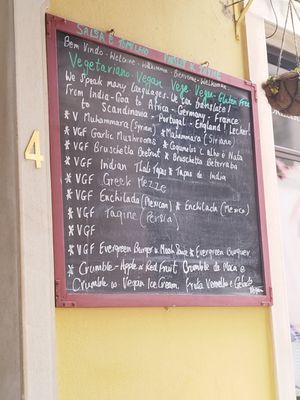 SALSA & TOMILHO
Bem Vindo - Welcome - Willkommen - Bienvenue - Welkommen.
Vegetariano - Vegan Vege - Vegan - Gluten Free
We Speak many languages - We can translate!
From India - Goa to Africa - Germany - France
to Scandinavia - Portugal - England! Lecker!
* V Muhammara (Syrian) * Muhammara (Siriano)
* VGF Garlic Mushrooms * Cogumelos c alho e Nata
* VGF Bruschetta Beetroot * Bruschetta Beterraba
* VGF Indian Thali Tapas * Tapas de India
* VGF Greek Mezze
* VGF Enchilada (Mexican) * Enchilada (Mexico)
* VGF Tagine (Persia)
* VGF
* VGF Evergreen Burger * Evergreen Burguer
* Crumble - Apple & Red Fruit Crumble de Maca e
Crumble w Vegan Ice Cream. Fruta Vermelho e Gelado
Vegan
4